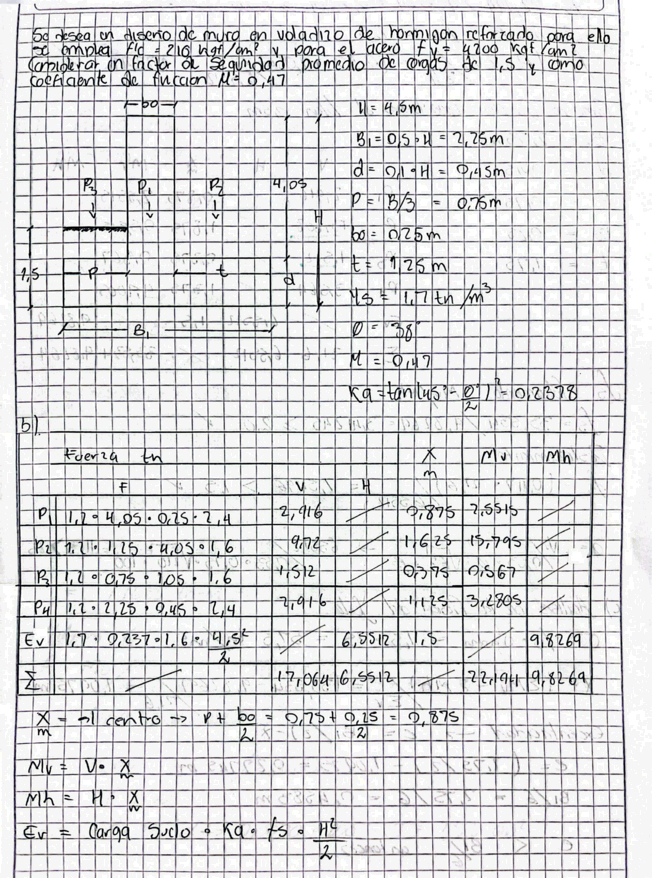 Se desea en diseño de muro en voladizo de hormigon reforzado para ello
se emplea f'c = 210 kgf/cm² y para el acero fy = 4200 kgf/cm²
Considerar un factor de seguridad promedio de cargas de 1,5 y como
coeficiente de fricción M = 0,47
bo
H = 4,5m
B₁ = 0,5 · H = 2,25m
d = 0,1 · H = 0,45m
P = B/3 = 0,75m
bo = 0,25m
t = 1,25m
γs = 1,7 tn/m³
Ø = 38°
M = 0,47
Ka = tan(45° - Ø/2)² = 0,2378
P3 P1 P2 4,05
H
1,5 P t d
B₁
b)
Fuerza tn X/m Mv Mh
F V H
P1 1,2 · 4,05 · 0,25 · 2,4 2,916 0,875 2,5515
P2 1,2 · 1,25 · 4,05 · 1,6 9,72 1,625 15,795
P3 1,2 · 0,75 · 1,05 · 1,6 1,512 0,375 0,567
P4 1,2 · 2,25 · 0,45 · 2,4 2,916 1,125 3,2805
Ev 1,7 · 0,237 · 1,6 · 4,5²/2 6,5512 1,5 9,8269
Σ 17,064 6,5512 22,194 9,8269
X/m = al centro → P + bo/2 = 0,75 + 0,25/2 = 0,875
Mv = V · X/m
Mh = H · X/m
Ev = Carga Suelo · Ka · fs · H²/2